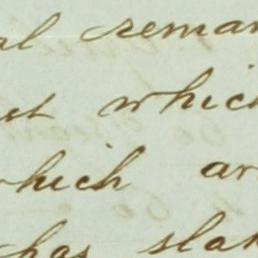 al reman
st which
which ar
has slat